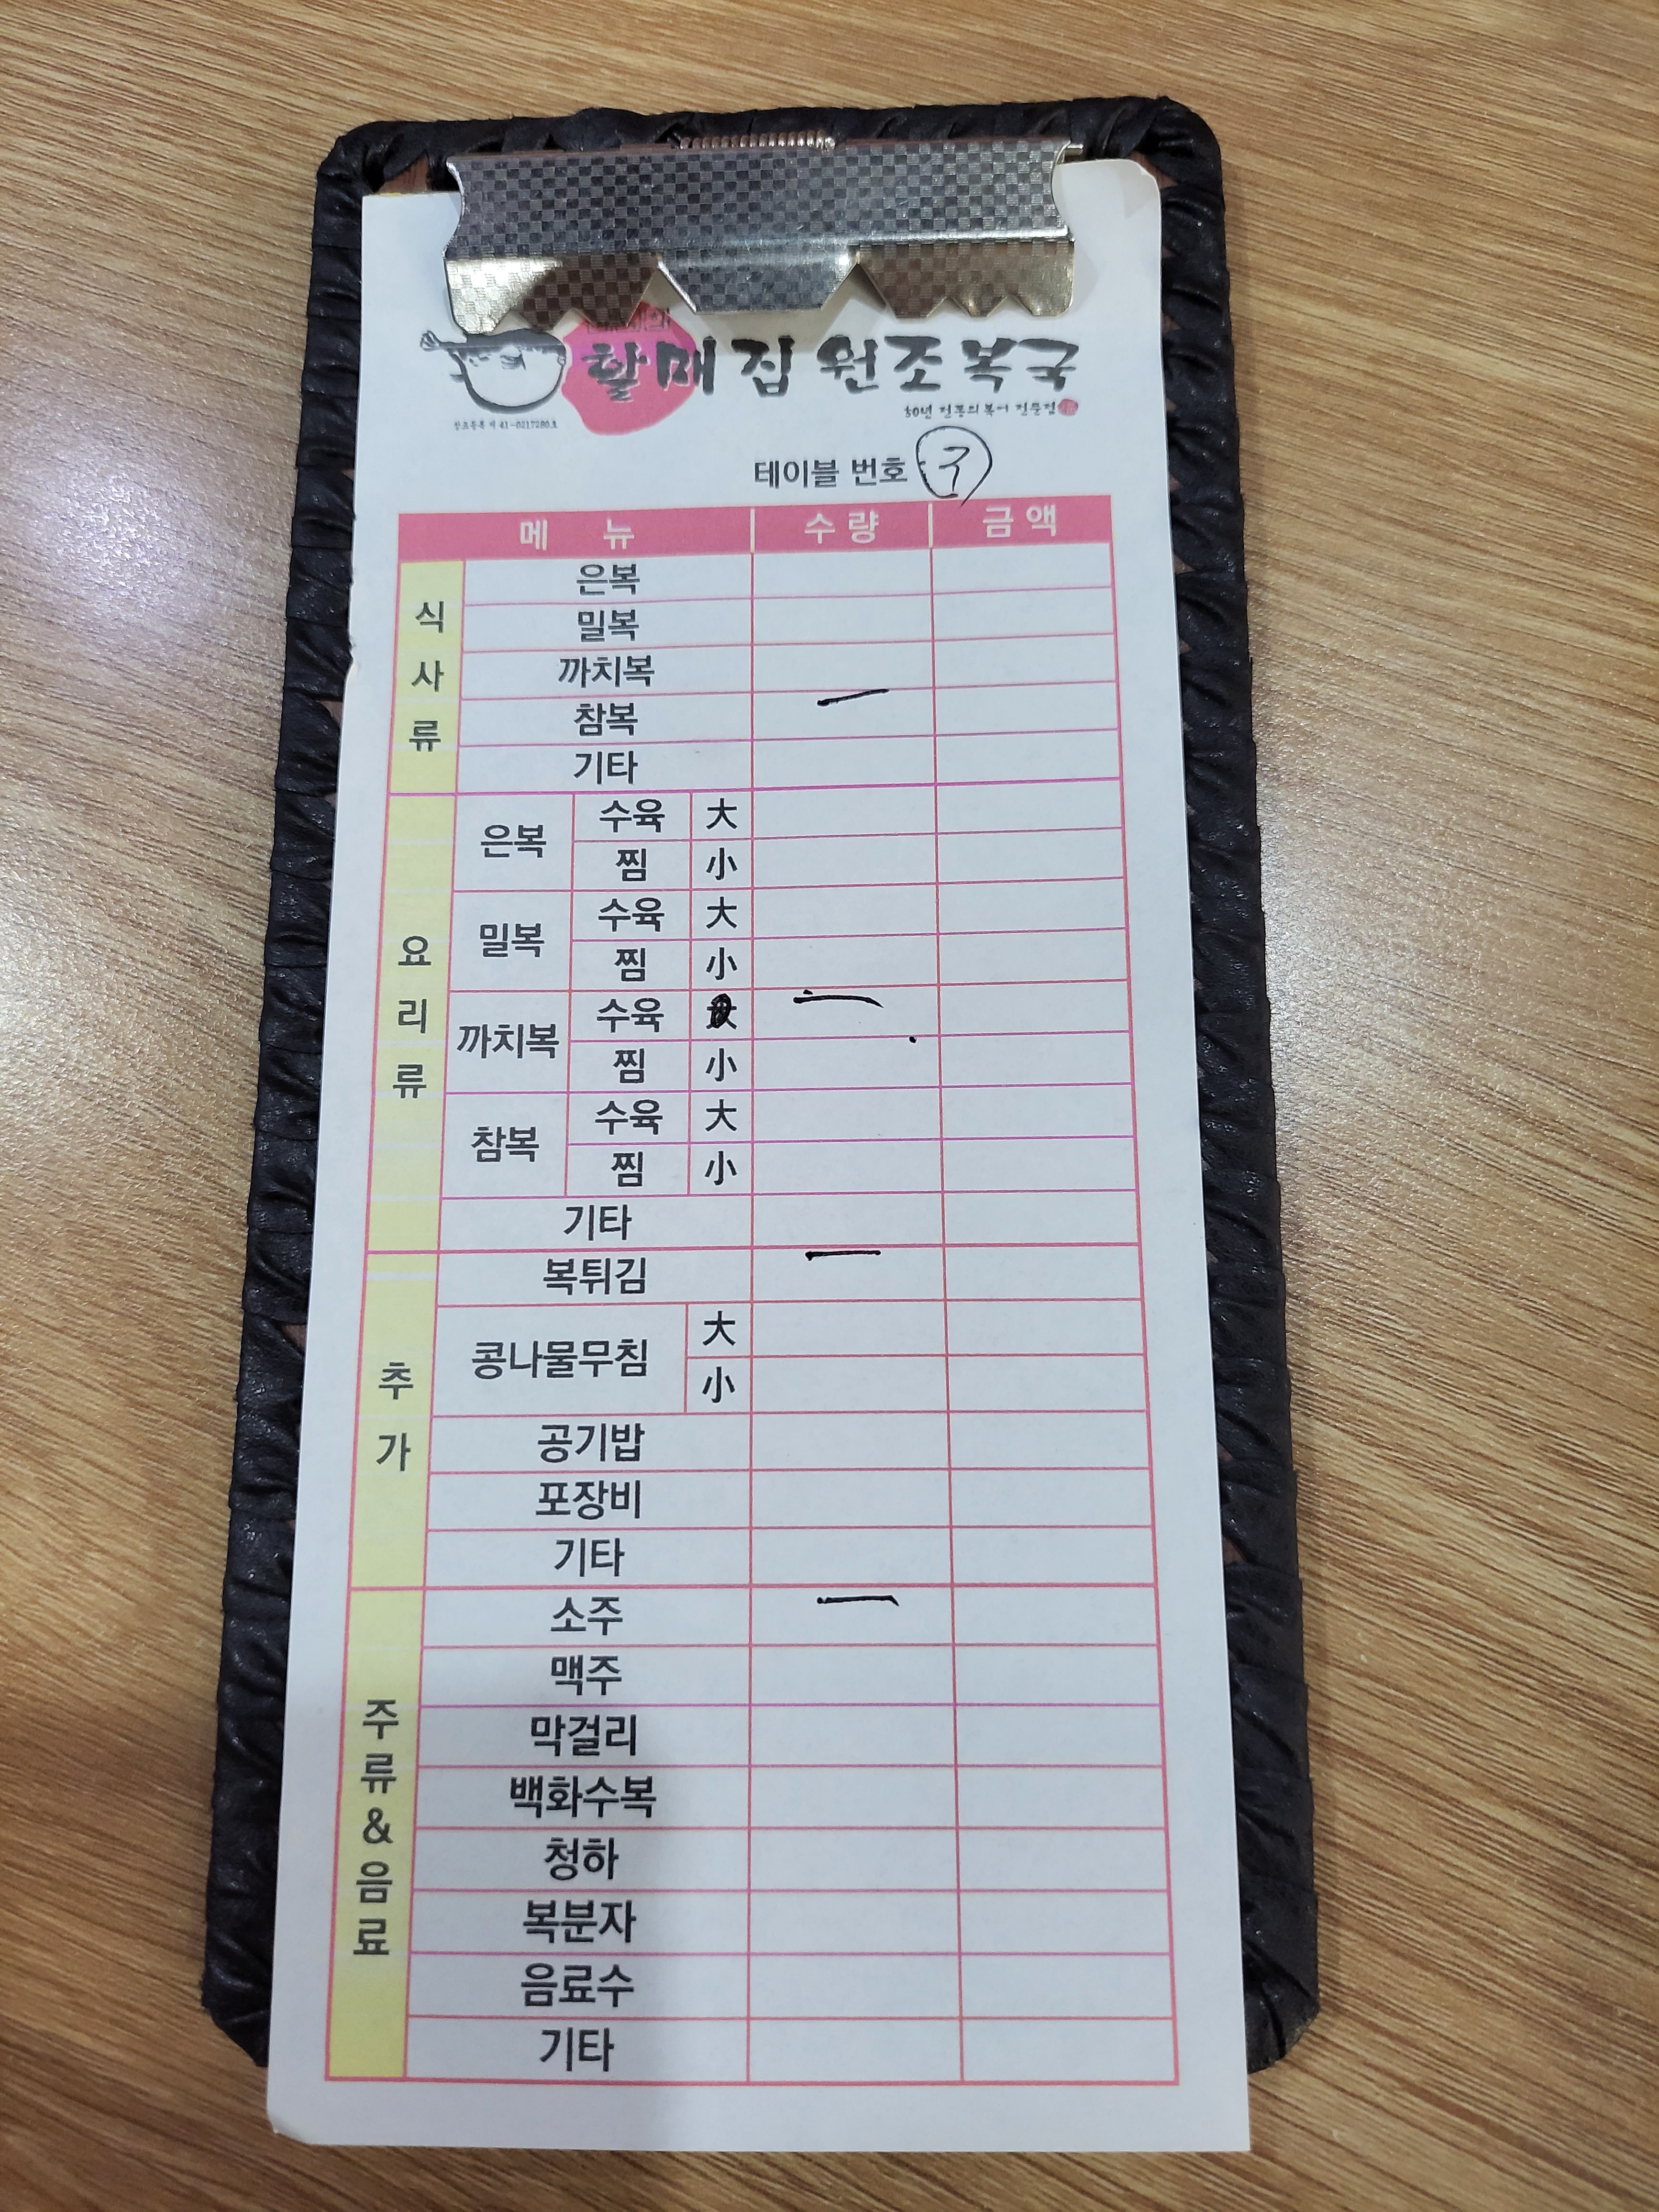 할매집 원조복국
30년 전통의 복어 전문점
상표등록 제 41-0217280호
테이블 번호 7
메 뉴 수 량 금 액
식사류
은복
밀복
까치복
참복
기타
요리류
은복 수육 大
찜 小
밀복 수육 大
찜 小
까치복 수육 大
찜 小
참복 수육 大
찜 小
기타
추가
복튀김
콩나물무침 大
小
공기밥
포장비
기타
주류&음료
소주
맥주
막걸리
백화수복
청하
복분자
음료수
기타